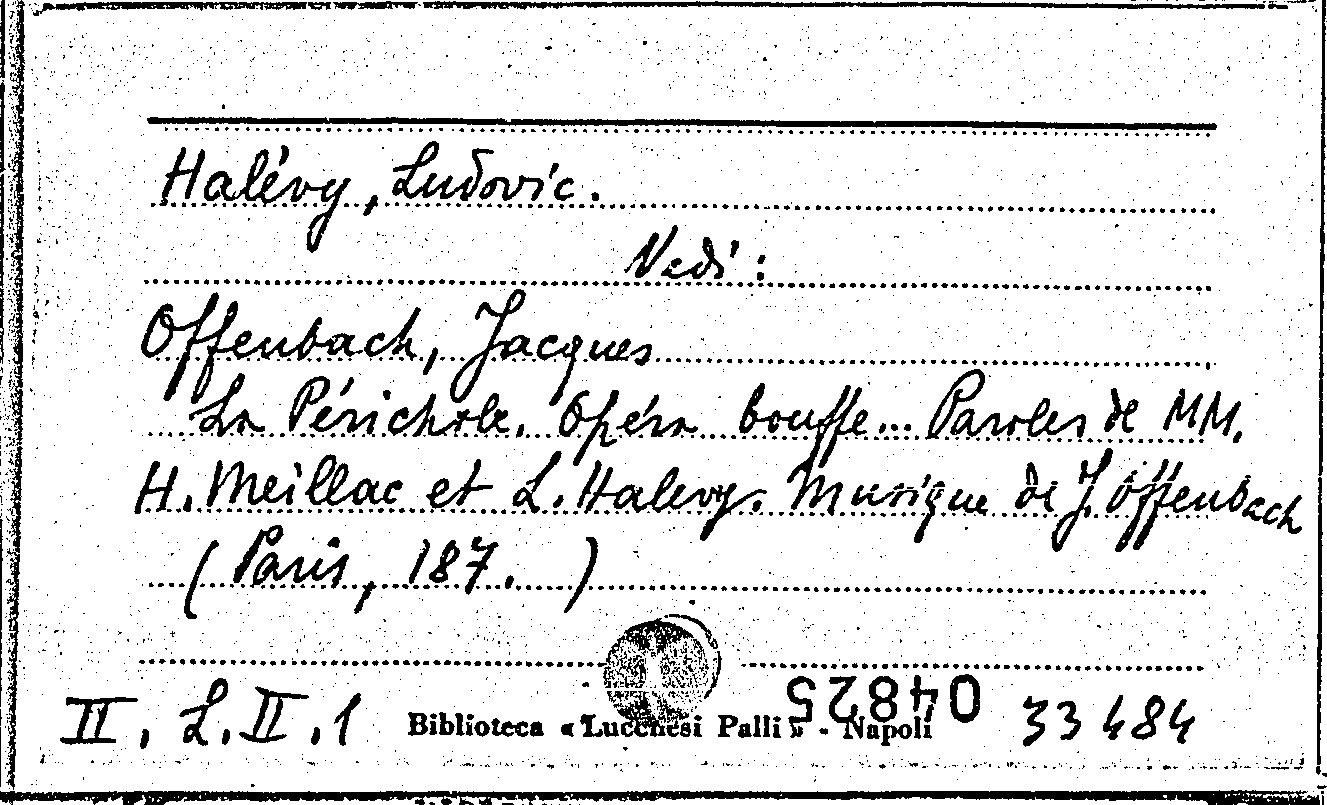 Halévy, Ludovic.
Vedi :
Offenbach, Jacques
La Périchole. Opéra bouffe... Paroles de MM.
H. Meillac et L. Halevy. Musique de J. Offenbach
(Paris, 187. )
04825
II. L. II. 1 Biblioteca « Lucchesi Palli » - Napoli 33484